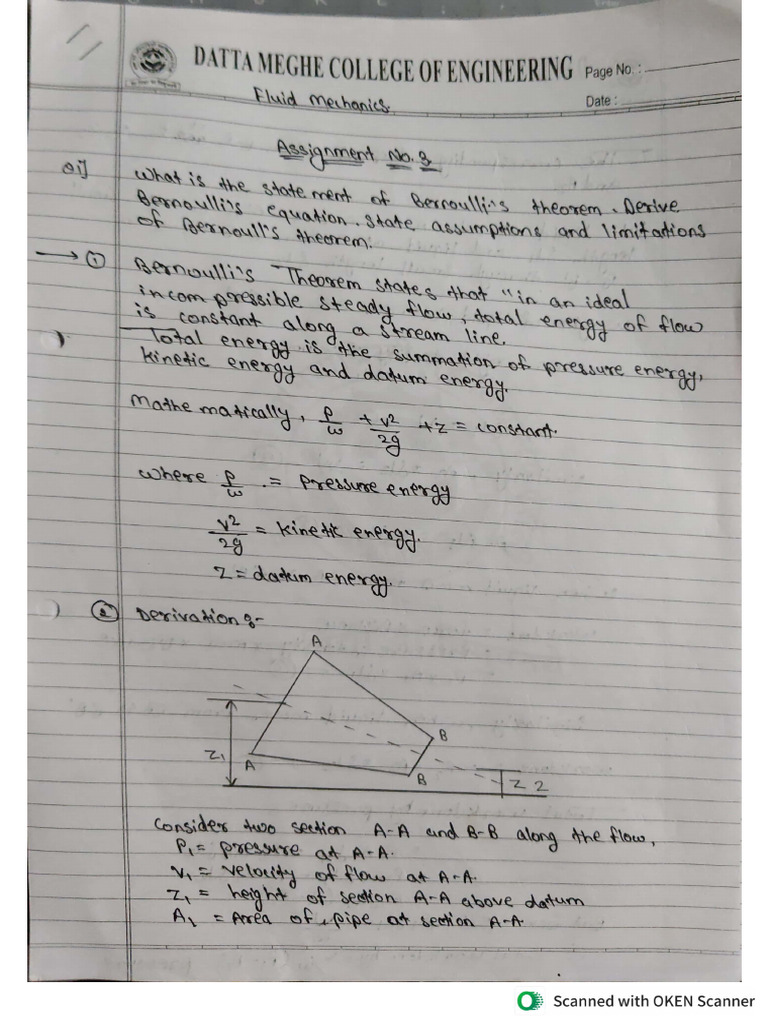 DATTA MEGHE COLLEGE OF ENGINEERING Page No. :
Fluid Mechanics.
Date :
Assignment No. 3
Q1]
What is the statement of Bernoulli's theorem. Derive
Bernoulli's equation. State assumptions and limitations
of Bernoull's theorem.
→ ①
Bernoulli's Theorem states that "in an ideal
incompressible steady flow, total energy of flow
is constant along a stream line.
Total energy is the summation of pressure energy,
kinetic energy and datum energy.
Mathematically, P/w + v²/2g + z = constant.
where P/w . = pressure energy
v²/2g = kinetic energy.
z = datum energy.
② Derivation :-
A
B
Z1
A
B
Z2
Consider two section A-A and B-B along the flow,
P1 = pressure at A-A.
v1 = velocity of flow at A-A.
Z1 = height of section A-A above datum
A1 = Area of pipe at section A-A.
Scanned with OKEN Scanner